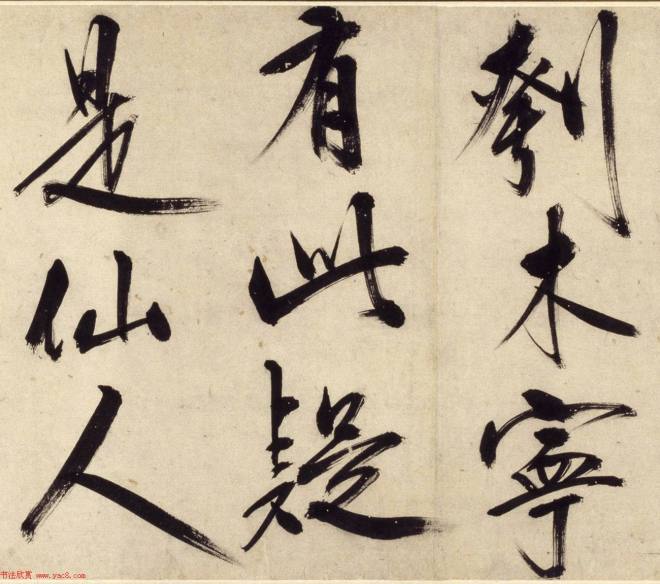 刳木寧
有此疑
是仙人
书法欣赏 www.yac8.com